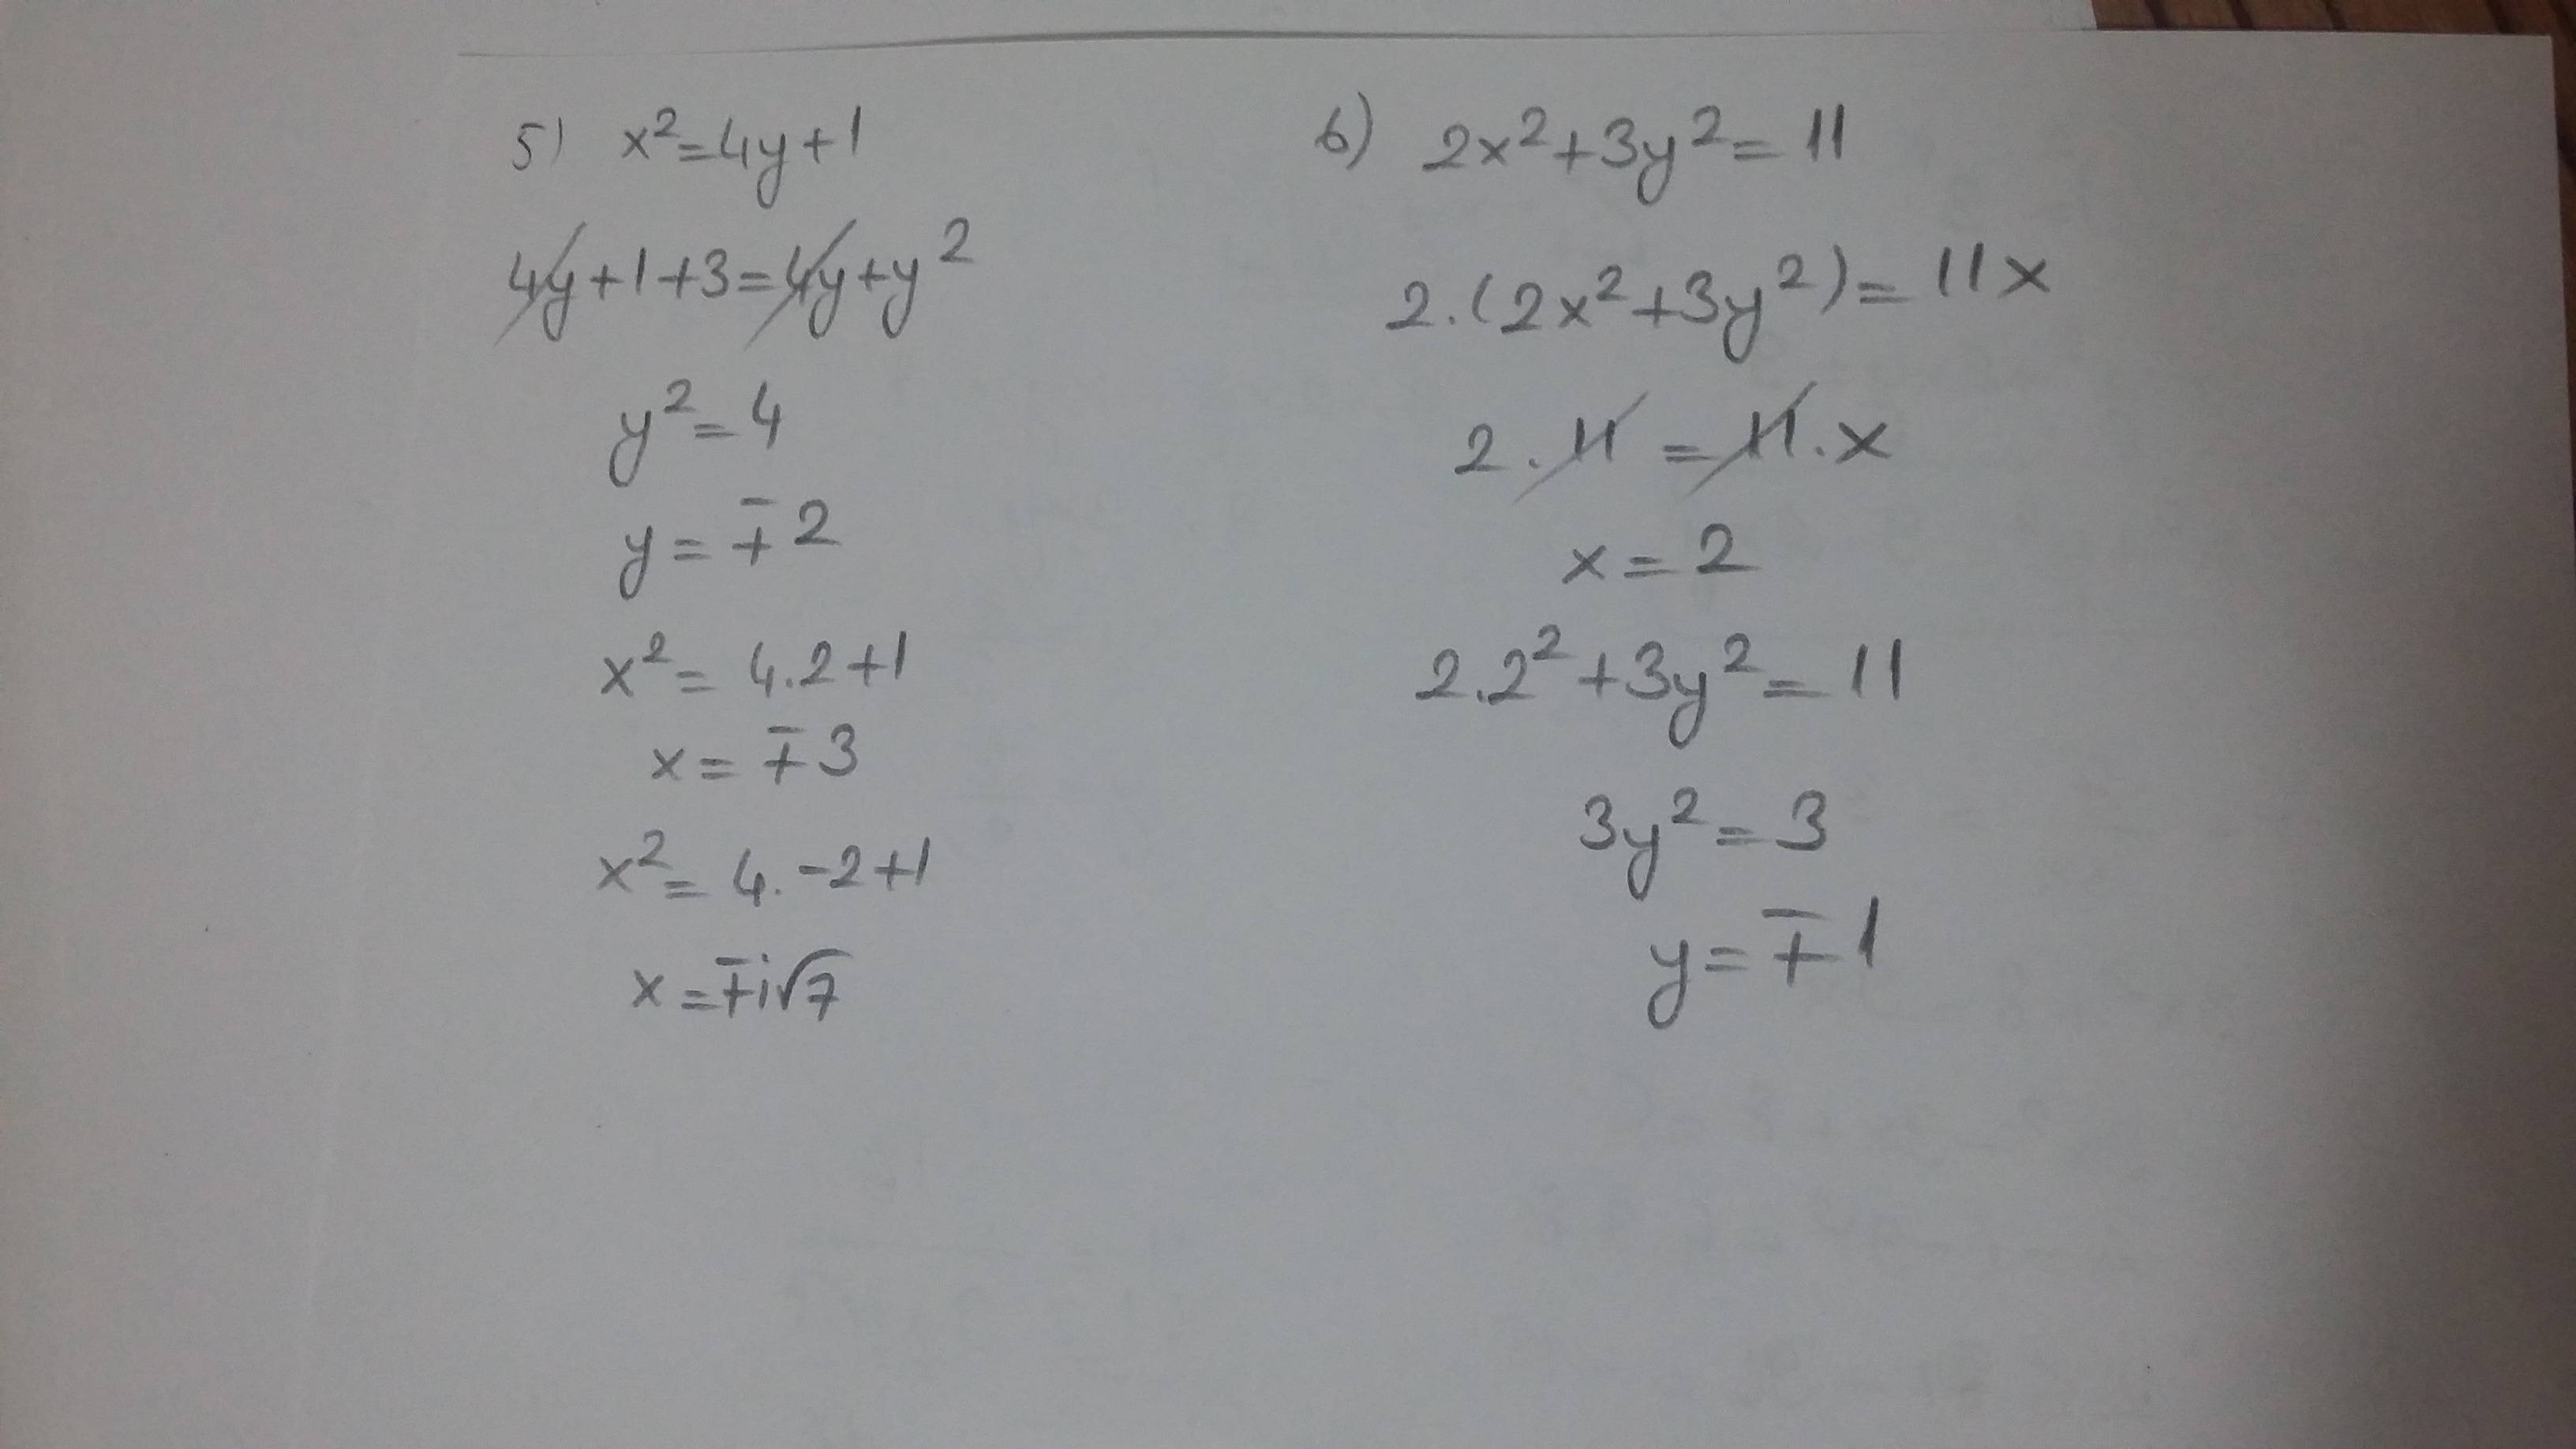 5) x²=4y+1
4y+1+3=4y+y²
y²=4
y=∓2
x²=4.2+1
x=∓3
x²=4.-2+1
x=∓i√7
6) 2x²+3y²=11
2.(2x²+3y²)=11x
2.11=11.x
x=2
2.2²+3y²=11
3y²=3
y=∓1